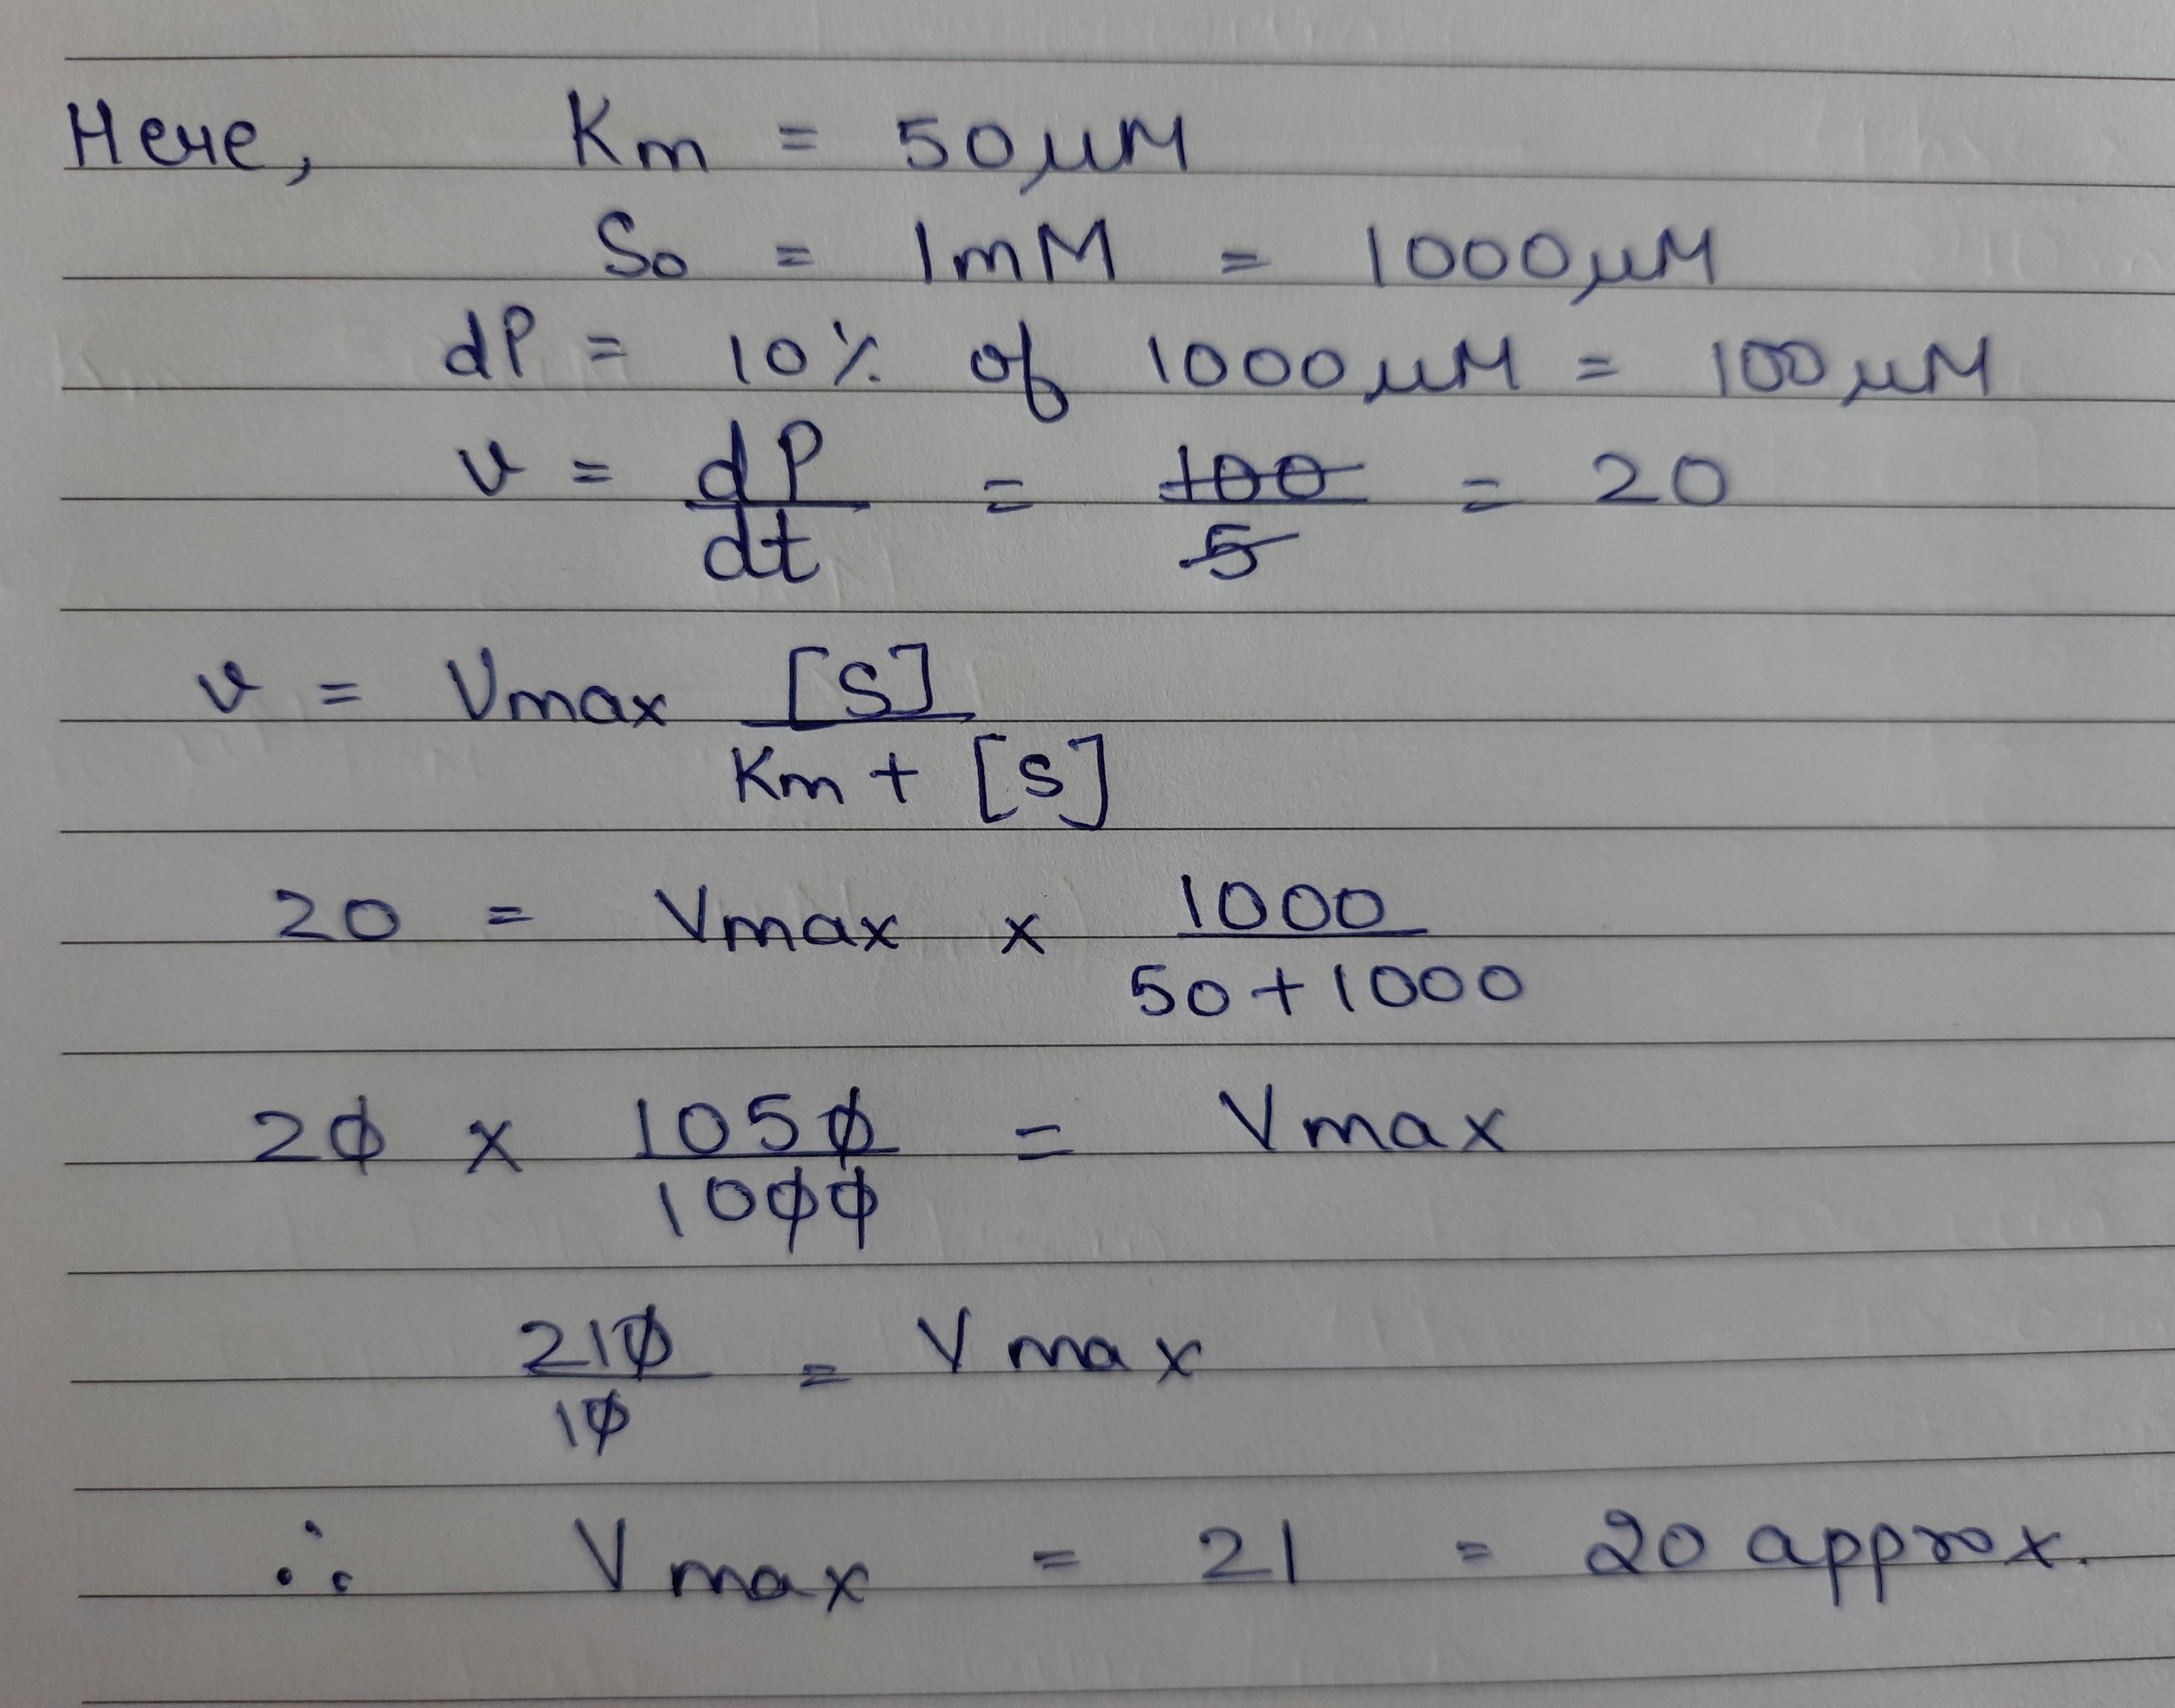 Here, Km = 50 μM
So = 1mM = 1000 μM
dP = 10% of 1000 μM = 100 μM
v = dP/dt = 100/5 = 20
v = Vmax [S]/Km + [S]
20 = Vmax x 1000/50+1000
20 x 1050/1000 = Vmax
210/10 = Vmax
∴ Vmax = 21 = 20 approx.